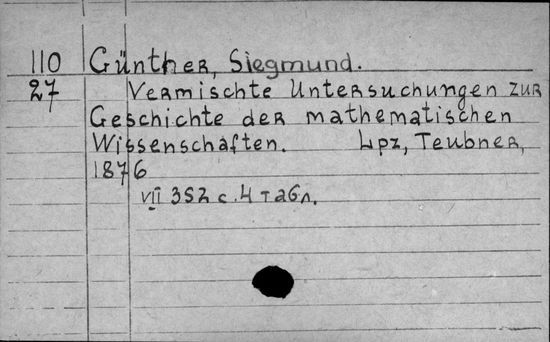 110 Günther, Siegmund.
27 Vermischte Untersuchungen zur
Geschichte der mathematischen
Wissenschaften. Lpz, Teubner,
1876
VII 352 c. 4 табл.